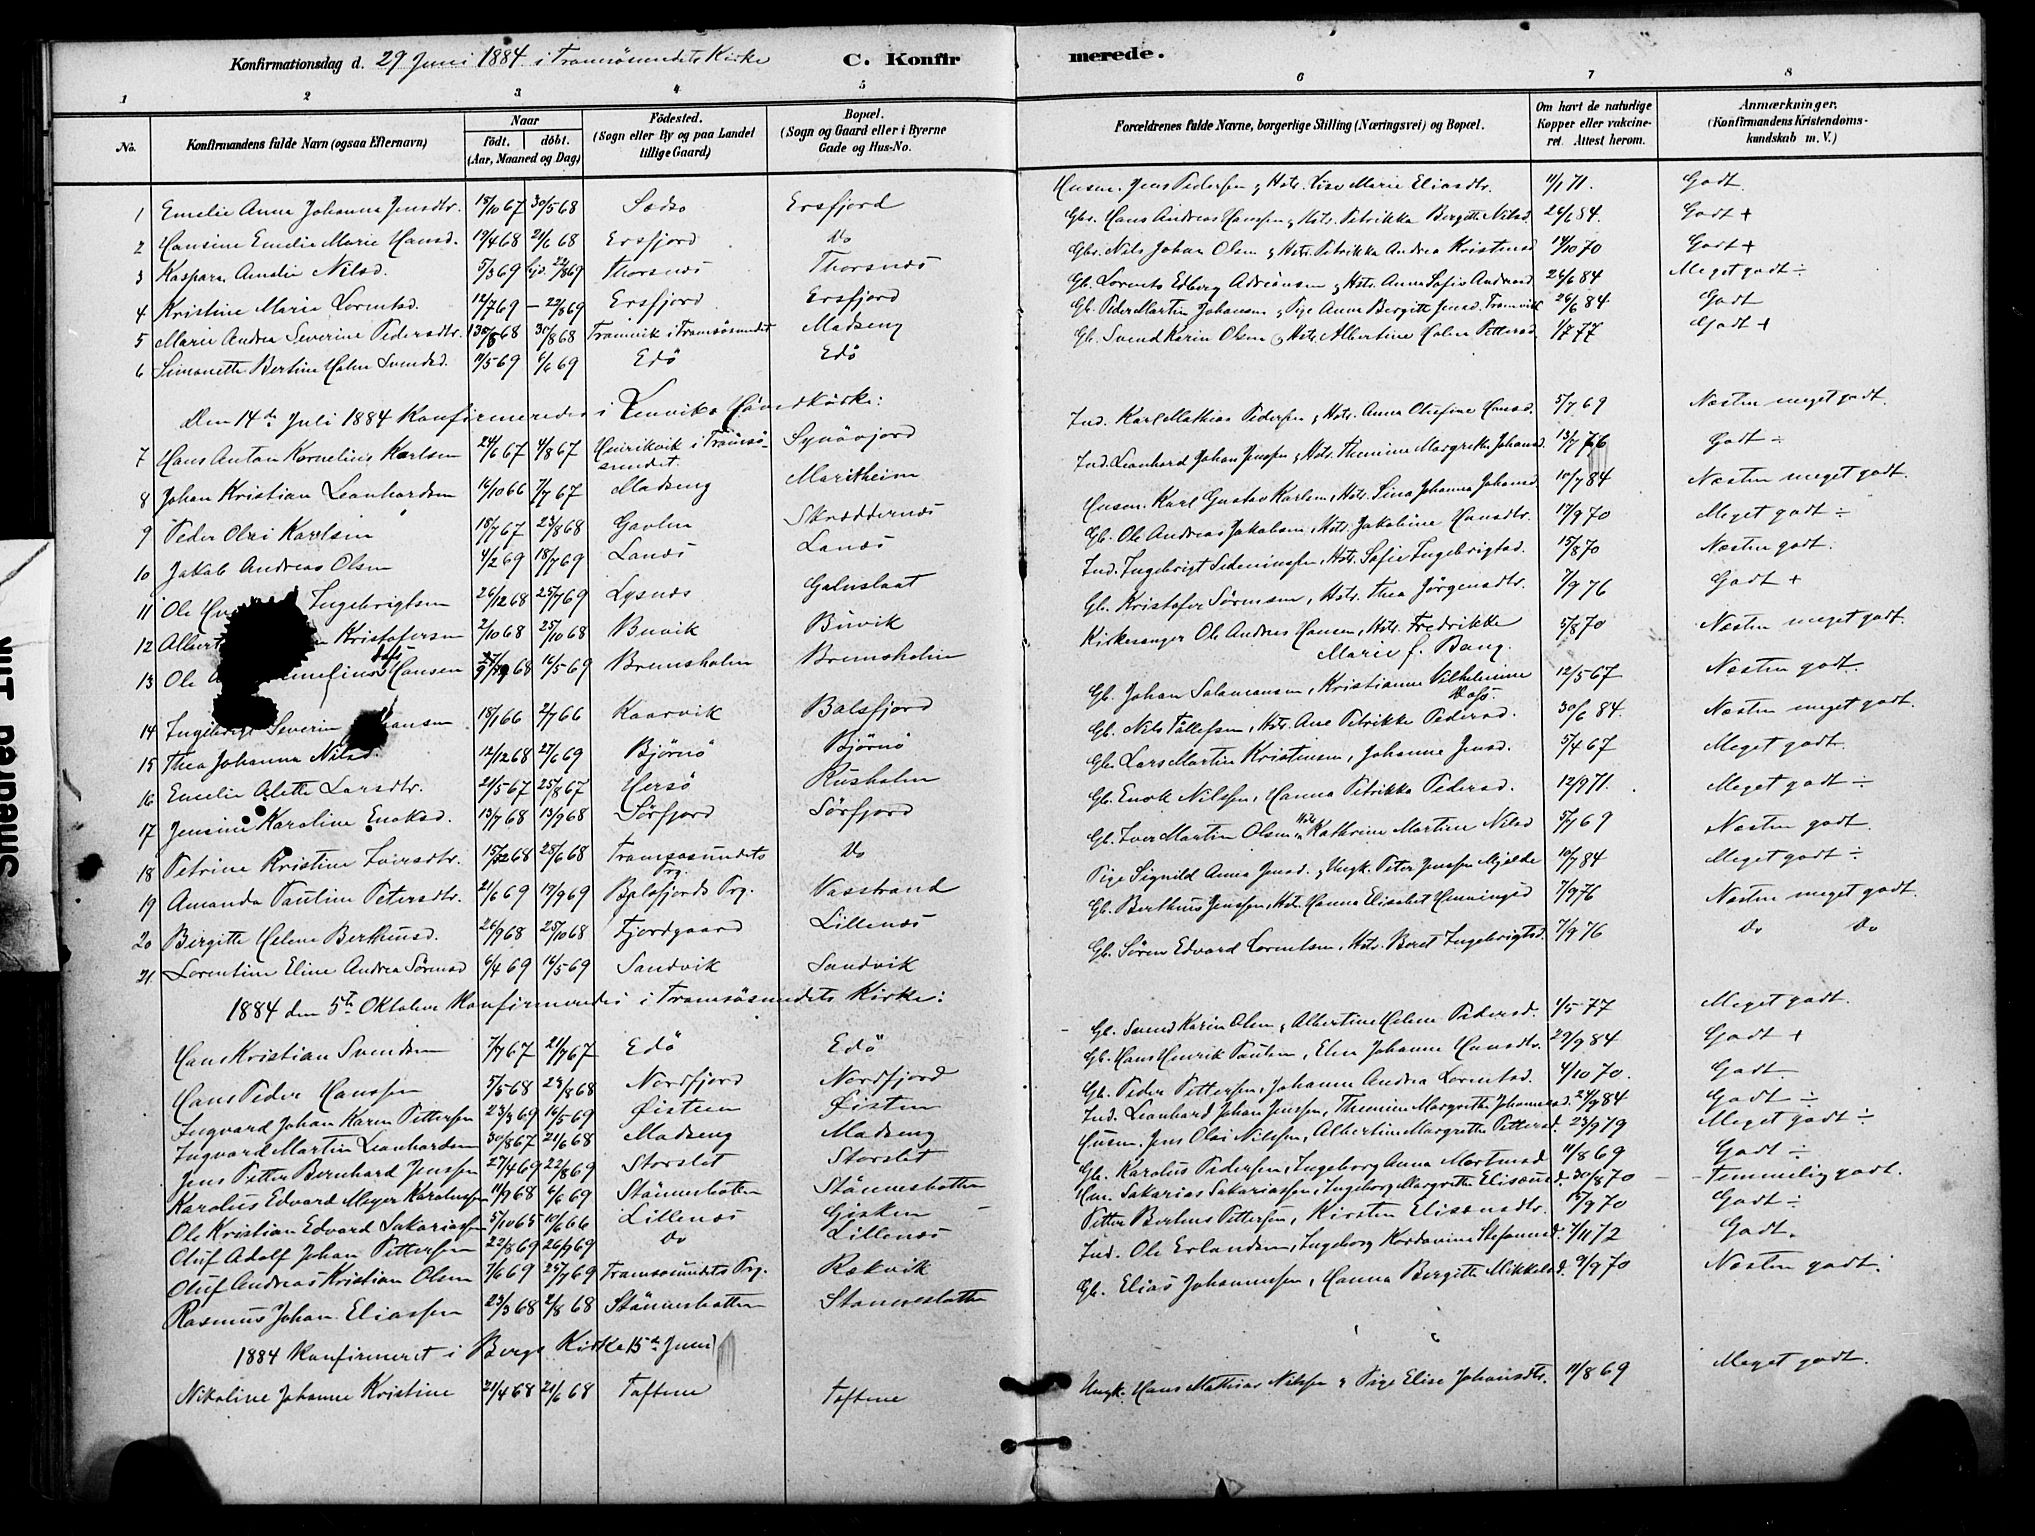 Konfirmationsdag d. 29 Juni 1884 i Tromsösundets Kirke C. Konfirmerede.
1 2 3 4 5 6 7 8
No. Konfirmandens fulde Navn (ogsaa Efternavn) Naar født. døbt. (Aar, Maaned og Dag) Fødested. (Sogn eller By og paa Landet tillige Gaard) Bopæl. (Sogn og Gaard eller i Byerne Gade og Hus-No. Forældrenes fulde Navne, borgerlige Stilling (Næringsvei) og Bopæl. Om havt de naturlige Kopper eller vakcineret. Attest herom. Anmærkninger, (Konfirmandens Kristendomskundskab m. V.)
1 Emelie Anna Johanna Jensdtr. 18/10 67 30/5 68 Ersfjord Husm. Jens Pedersen & Hstr. Lise Marie Eliasdtr. 11/1 71. Godt
2 Hansine Emelie Marie Hansd. 19/4 68 21/6 68 Ersfjord Do Gbr. Hans Andreas Hanssen & Hstr. Petrikke Bergitte Nilsd. 26/6 84. Godt +
3 Kaspara Amalie Nilsd. 5/3 69 22/8 69 Thorsnæs Thorsnæs Gbr. Nils Johan Olsen & Hstr. Petrikka Andrea Kristensd. 14/10 70 Godt +
4 Kristine Marie Lorentsd. 12/7 69 22/8 69 Ersfjord Ersfjord Gb. Lorents Edberg Adriansen & Hstr. Anna Sofie Andersd. 26/6 84 Meget godt ÷
5 Marie Andrea Severine Pedersdtr. 30/8 68 Tromvik i Tromsösundet Madseng Gb. Peder Martin Johansen & Pige Anne Bergitte Jensd. Tromvik 26/6 84 Godt
6 Simonette Bertine Holm Svendsd. 11/5 69 6/6 69 Edö Edö Gb. Svend Karin Olsen & Hstr. Albertine Holm Pettersd. 1/7 77 Godt +
Den 14de Juli 1884 Konfirmeredes i Lenviks Hovedkirke:
7 Hans Anton Kornelius Karlsen 24/6 67 4/8 67 Henrikvik i Tromsösundet. Ind. Karl Mathias Pedersen & Hstr. Anna Olufine Hansd. 5/7 69 Næsten meget godt.
8 Johan Kristian Leonhardsen 16/10 66 7/7 67 Madseng Maritheim Ind. Leonhard Johan Jenssen & Hstr. Themine Margrethe Johansd. 13/7 76 Godt ÷
9 Peder Olai Karlsen 18/7 67 23/8 68 Gavlen Skræddernæs Husm. Karl Gustav Karlsen, Hstr. Lina Johanna Johansd. 10/7 84 Næsten meget godt.
10 Jakob Andreas Olsen 4/2 69 18/7 69 Lanæs Lanæs Gb. Ole Andreas Jakobsen, Hstr. Jakobine Hansdtr. 17/9 70 Meget godt ÷
11 Ole Ingebrigtsen 26/12 68 25/7 69 Lysnæs Galnslaat Ind. Ingebrigt Hstr. Sofie Ingebrigtsd. 15/8 70 Næsten godt.
12 Albert Kristofersen 2/10 68 25/10 68 Buvik Buvik Gb. Kristofer Sörensen, Hstr. Thea Jörgensdtr. 7/9 76 Godt +
13 Ole Hansen 16/5 69 Bremsholm Bremsholm Kirkesanger Ole Andreas Hansen, Hstr. Fredrikke Marie f. Bang. 5/8 70 Næsten meget godt.
14 Ingebrigt Severin Johansen 18/1 66 2/7 66 Kaarvik Balsfjord Gb. Johan Salamonsen, Kristianne Vilhelmine 12/5 67 Næsten godt.
15 Thea Johanna Nilsd. 12/12 68 27/6 69 Björnö Björnö Gb. Nils Tollefsen, Hstr. Ane Petrikke Pedersd. 30/6 84. Næsten meget godt.
16 Emelie Alette Larsdtr. 21/5 67 25/8 67 Hersö Rusholm Gb. Lars Martin Kristensen, Johanna Jensd. 5/4 67 Meget godt.
17 Jensine Karoline Enoksd. 13/7 68 13/9 68 Sörfjord Sörfjord Gb. Enok Nilssen, Hanna Petrikke Pedersd. 12/9 71. Meget godt ÷
18 Petrine Kristine Iversdtr. 28/6 68 Tromsösundets Prg. Do Gb. Iver Martin Olsen Kathrine Martine Nilsd 5/7 69 Næsten godt.
19 Amanda Pauline Petersdtr. 21/6 69 19/9 69 Balsfjords Prg. Vasstrand Pige Signild Anna Jensd. & Ungk. Peter Jenssen Mjelde 10/7 84 Meget godt ÷
20 Birgitte Helene Berthusd. 26/9 68 25/10 68 Fjordgaard Lillenæs Gb. Berthus Jenssen, Hstr. Hanna Elisabet Henningsd 7/9 76 Næsten meget godt.
21. Lorentine Eline Andrea Sörensd 6/4 69 16/5 69 Sandvik Sandvik Gb. Sören Edvard Lorentsen, Hstr. Beret Ingebrigtsd. 7/9 76 Do Do
1884 den 5te Oktober Konfirmeredes i Tromsösundets Kirke:
Hans Kristian Svendsen 7/7 67 21/7 67 Edö Edö Gb. Svend Karin Olsen & Albertine Helene Pedersd. 1/5 77 Meget godt.
Hans Peder Hanssen 5/5 68 23/8 68 Nordfjord Nordfjord Gb. Hans Henrik Paulsen, Elen Johanna Hansdtr. 29/9 84 Godt +
Ingvard Johan Karen Pettersen 23/3 69 16/5 69 Øisteen Øisteen Gb. Peder Pettersen, Johanna Andrea Lorentsd. 4/10 70. Godt
Ingvard Martin Leonhardsen 30/8 67 21/6 68 Madseng Madseng Ind. Leonhard Johan Jenssen, Themine Margrethe Johannesd. 24/9 84 Godt ÷
Jens Petter Bernhard Jenssen 27/4 69 22/8 69 Storslet Storslet Husm. Jens Olai Nilssen, Albertine Margrethe Pettersd. 23/9 79 Meget godt ÷
Karolus Edvard Meyer Karolussen 11/9 68 6/6 69 Stönnesbotten Stönnesbotten Gb. Karolus Pedersen, Ingeborg Anna Mortensd 11/8 69 Godt ÷
Ole Kristian Edvard Sakariassen 5/10 65 10/6 66 Lillenæs Gisken Sakarias Sakariassen, Ingeborg Margrethe Eliseusd. 30/8 70 Temmelig godt.
Oluf Adolf Johan Pettersen 22/8 69 26/9 69 Do Lillenæs Petter Berthus Pettersen, Kirsten Eliseusdtr. 15/9 70 Godt ÷
Oluf Andreas Kristian Olsen 7/6 69 25/7 69 Tromsösundets Prg. Rækvik Ind. Ole Erlandsen, Ingeborg Kordavine Stefansd. 7/11 72 Godt.
Rasmus Johan Eliassen 23/3 68 2/8 68 Stönnesbotten Stönnesbotten Gb. Elias Johannessen, Hanna Bergitte Mikkelsd. 9/9 70 Næsten godt.
1884 Konfirmeret i Bergs Kirke 15de Juni
Nikoline Johanne Kristine 21/4 68 21/6 68 Toftene Toftene Ungk. Hans Mathias Nilsen & Pige Elise Johansdtr. 11/8 69 Meget godt.